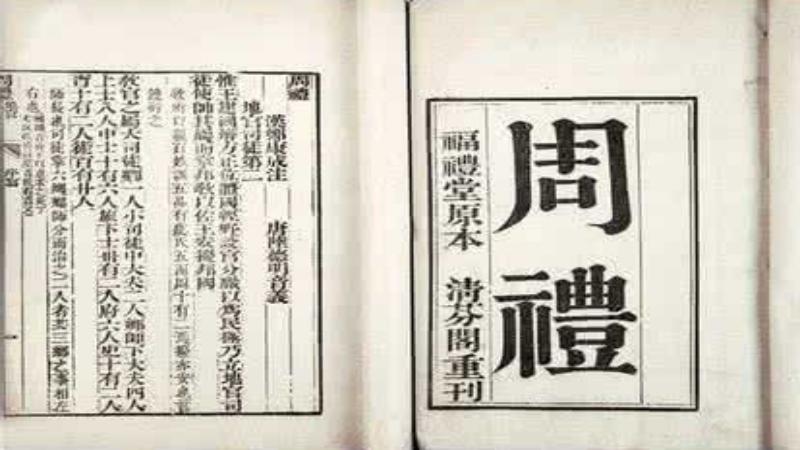 周禮
福禮堂原本 清芬閣重刊
周禮
地官司徒第二
漢鄭康成注 唐陸德明音義
惟王建國辨方正位體國經野設官分職以爲民極乃立地官司
徒使帥其屬而掌邦敎以佐王安擾邦國
敎官之屬大司徒卿一人小司徒中大夫二人鄉師下大夫四人
上士八人中士十有六人旅下士卅有二人府六人史十有二人
胥十有二人徒百有廿人
師長也司徒掌六鄉鄉師分而治之二人者共三鄉之事相左
右也